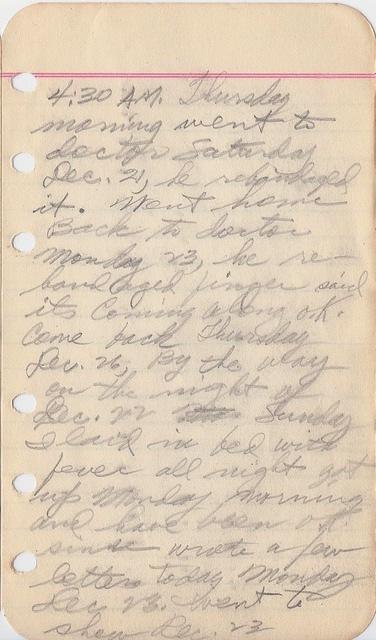 4:30 A.M. Thursday
morning went to
doctor Saturday
Dec. 21, he rebandaged
it. Went home
Back to doctor
Monday 23, he re-
bandaged finger said
its coming along ok.
Come back Thursday
Dec. 26, By the way
on the night of
Dec. 22 Sunday
I laid in bed with
fever all night got
up Monday morning
and have been ok
since wrote a few
letters today Monday
Dec. 23. Went to
show Dec. 23